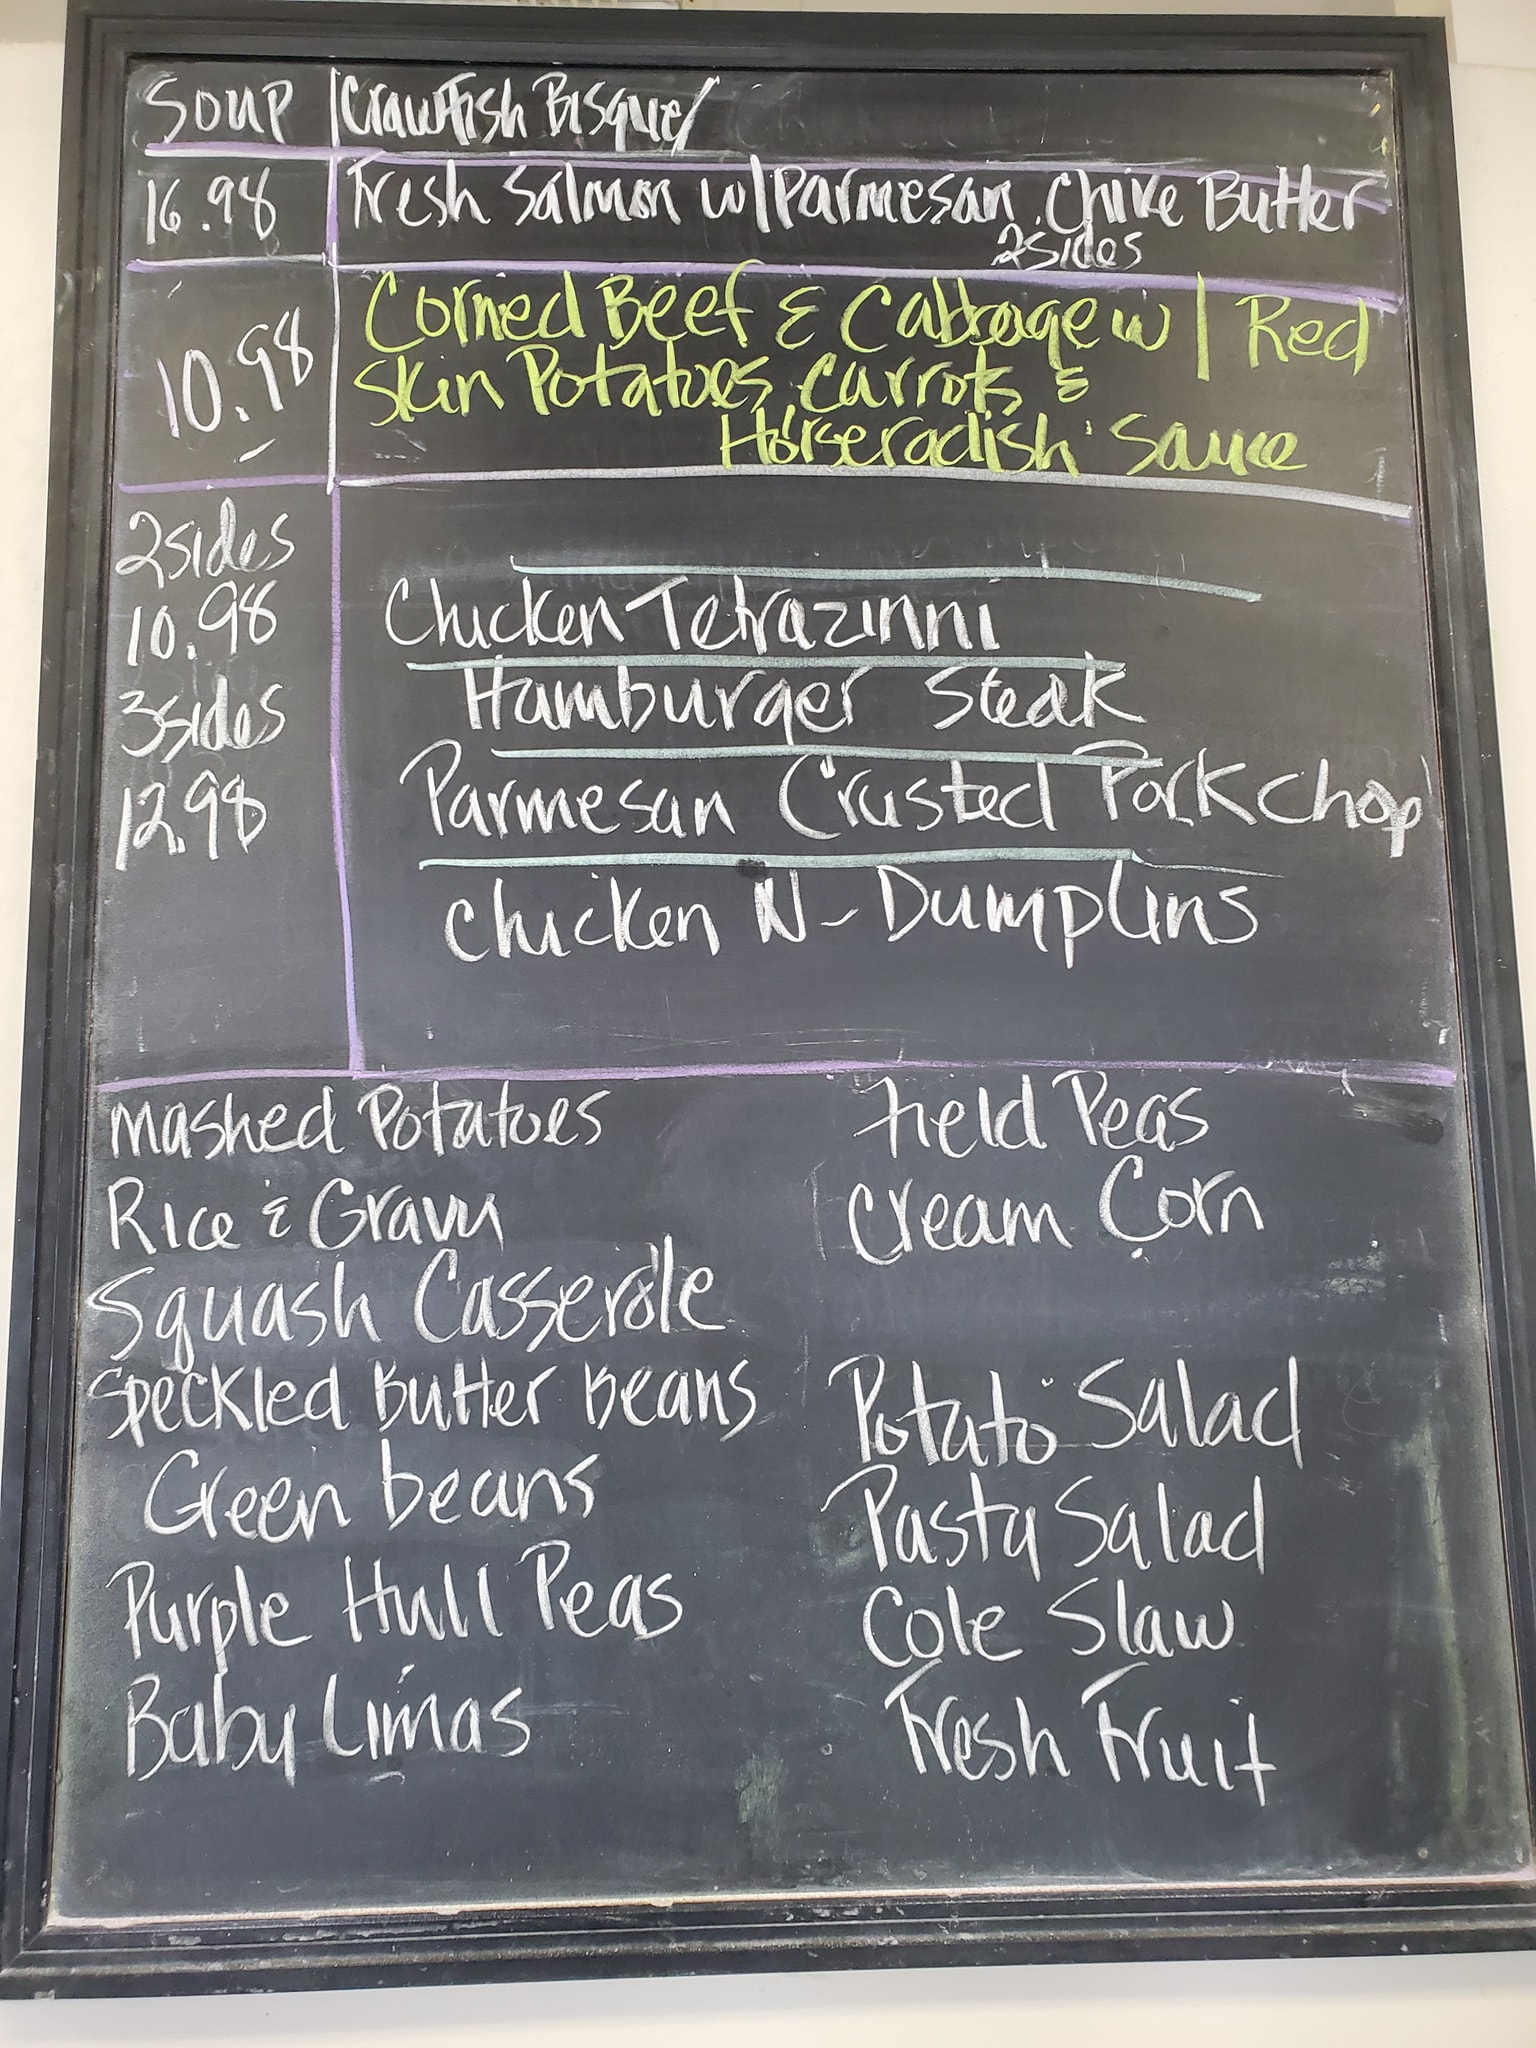 Soup Crawfish Bisque/
16.98 Fresh Salmon w/Parmesan Chive Butter
2sides
10.98 Corned Beef & Cabbage w/ Red
Skin Potatoes Carrots &
Horseradish Sauce
2sides
10.98 Chicken Tetrazinni
3sides Hamburger Steak
12.98 Parmesan Crusted Pork Chop
Chicken N- Dumplins
Mashed Potatoes
Rice & Gravy
Squash Casserole
Speckled Butter Beans
Green beans
Purple Hull Peas
Baby Limas
Field Peas
Cream Corn
Potato Salad
Pasta Salad
Cole Slaw
Fresh Fruit